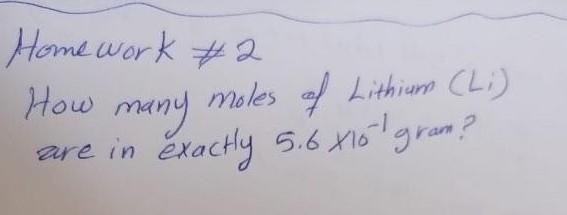 Homework #2
How many moles of Lithium (Li)
are in exactly 5.6 x10⁻¹ gram?